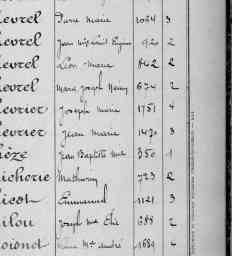 evrel Pierre Marie 1064 3
evrel Jean 920 2
evrel Léon Marie 842 2
evrel Marie Joseph Henry 674 2
evrier Joseph Marie 1751 4
evrier Jean Marie 1470 3
èze Jean Baptiste Mie 350 1
icherie Mathurin 723 2
icot Emmanuel 1121 3
ilou Joseph Mie Elie 688 2
oisnet Mie André 1689 4